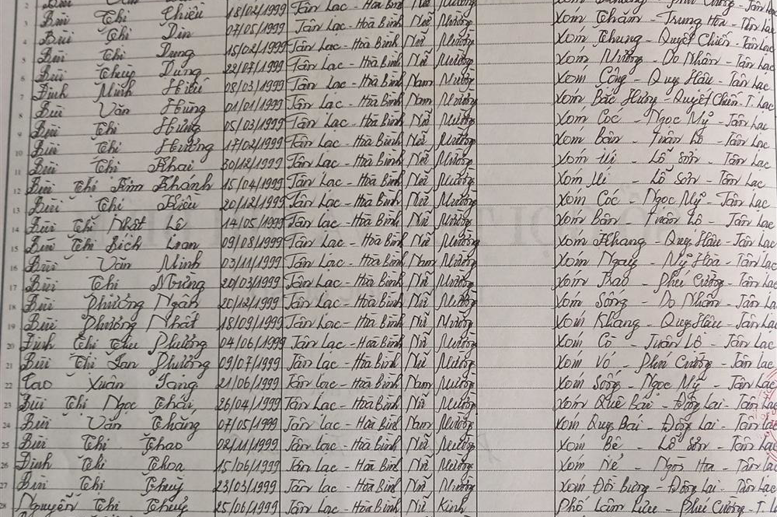 3 Bùi Thị Chiều 18/02/1999 Tân Lạc - Hoà Bình Nữ Mường
4 Bùi Thị Din 07/05/1999 Tân Lạc - Hoà Bình Nữ Mường Xóm Thăm - Trung Hoà - Tân Lạc
5 Bùi Thị Dung 15/02/1999 Tân Lạc - Hoà Bình Nữ Mường Xóm Thung - Quyết Chiến - Tân Lạc
6 Bùi Thuỳ Dung 22/07/1999 Tân Lạc - Hoà Bình Nữ Mường Xóm Mường - Do Nhân - Tân Lạc
7 Đinh Minh Hiếu 08/03/1999 Tân Lạc - Hoà Bình Nam Mường Xóm Cộng - Quy Hậu - Tân Lạc
8 Bùi Văn Hùng 01/01/1999 Tân Lạc - Hoà Bình Nam Mường Xóm Bắc Hưng - Quyết Chiến - T. Lạc
9 Bùi Thị Hưng 05/03/1999 Tân Lạc - Hoà Bình Nữ Mường Xóm Cóc - Ngọc Mỹ - Tân Lạc
10 Bùi Thị Hương 17/02/1999 Tân Lạc - Hoà Bình Nữ Mường Xóm Bân - Tuân Lộ - Tân Lạc
11 Bùi Thị Khai 30/12/1999 Tân Lạc - Hoà Bình Nữ Mường Xóm - Lỗ Sơn - Tân Lạc
12 Bùi Thị Kim Khánh 15/04/1999 Tân Lạc - Hoà Bình Nữ Mường Xóm - Lỗ Sơn - Tân Lạc
13 Bùi Thị Kiều 20/12/1999 Tân Lạc - Hoà Bình Nữ Mường Xóm Cóc - Ngọc Mỹ - Tân Lạc
14 Bùi Thị Nhật Lệ 14/05/1999 Tân Lạc - Hoà Bình Nữ Mường Xóm Bân - Tuân Lộ - Tân Lạc
15 Bùi Thị Bích Loan 09/08/1999 Tân Lạc - Hoà Bình Nữ Mường Xóm Khang - Quy Hậu - Tân Lạc
16 Bùi Văn Minh 03/11/1999 Tân Lạc - Hoà Bình Nam Mường Xóm - Mỹ Hoà - Tân Lạc
17 Bùi Thị 20/03/1999 Tân Lạc - Hoà Bình Nữ Mường Xóm Bào - Phú Cường - Tân Lạc
18 Bùi Phương Ngân 20/12/1999 Tân Lạc - Hoà Bình Nữ Mường Xóm Sông - Do Nhân - Tân Lạc
19 Bùi Phương Nhất 18/09/1999 Tân Lạc - Hoà Bình Nữ Mường Xóm Khang - Quy Hậu - Tân Lạc
20 Đinh Thị Thu Phương 04/06/1999 Tân Lạc - Hoà Bình Nữ Mường Xóm Cò - Tuân Lộ - Tân Lạc
21 Bùi Thị Lan Phương 09/07/1999 Tân Lạc - Hoà Bình Nữ Mường Xóm Vó - Phú Cường - Tân Lạc
22 Cao Xuân 21/06/1999 Tân Lạc - Hoà Bình Nam Mường Xóm Sông - Ngọc Mỹ - Tân Lạc
23 Bùi Thị Ngọc 26/04/1999 Tân Lạc - Hoà Bình Nữ Mường Xóm Quê Bái - Đông Lai - Tân Lạc
24 Bùi Văn Thắng 07/05/1999 Tân Lạc - Hoà Bình Nam Mường Xóm Quy Bái - Đông Lai - Tân Lạc
25 Bùi Thị Thao 02/11/1999 Tân Lạc - Hoà Bình Nữ Mường Xóm Bệ - Lỗ Sơn - Tân Lạc
26 Đinh Thị Thoa 15/06/1999 Tân Lạc - Hoà Bình Nữ Mường Xóm Nẻ - - Tân Lạc
27 Bùi Thị Thuỷ 23/03/1999 Tân Lạc - Hoà Bình Nữ Mường Xóm Đồi Bưng - Đông Lai - Tân Lạc
28 Nguyễn Thị Thuỷ 25/06/1999 Tân Lạc - Hoà Bình Nữ Kinh Phố Lâm Lưu - Phú Cường - T. Lạc